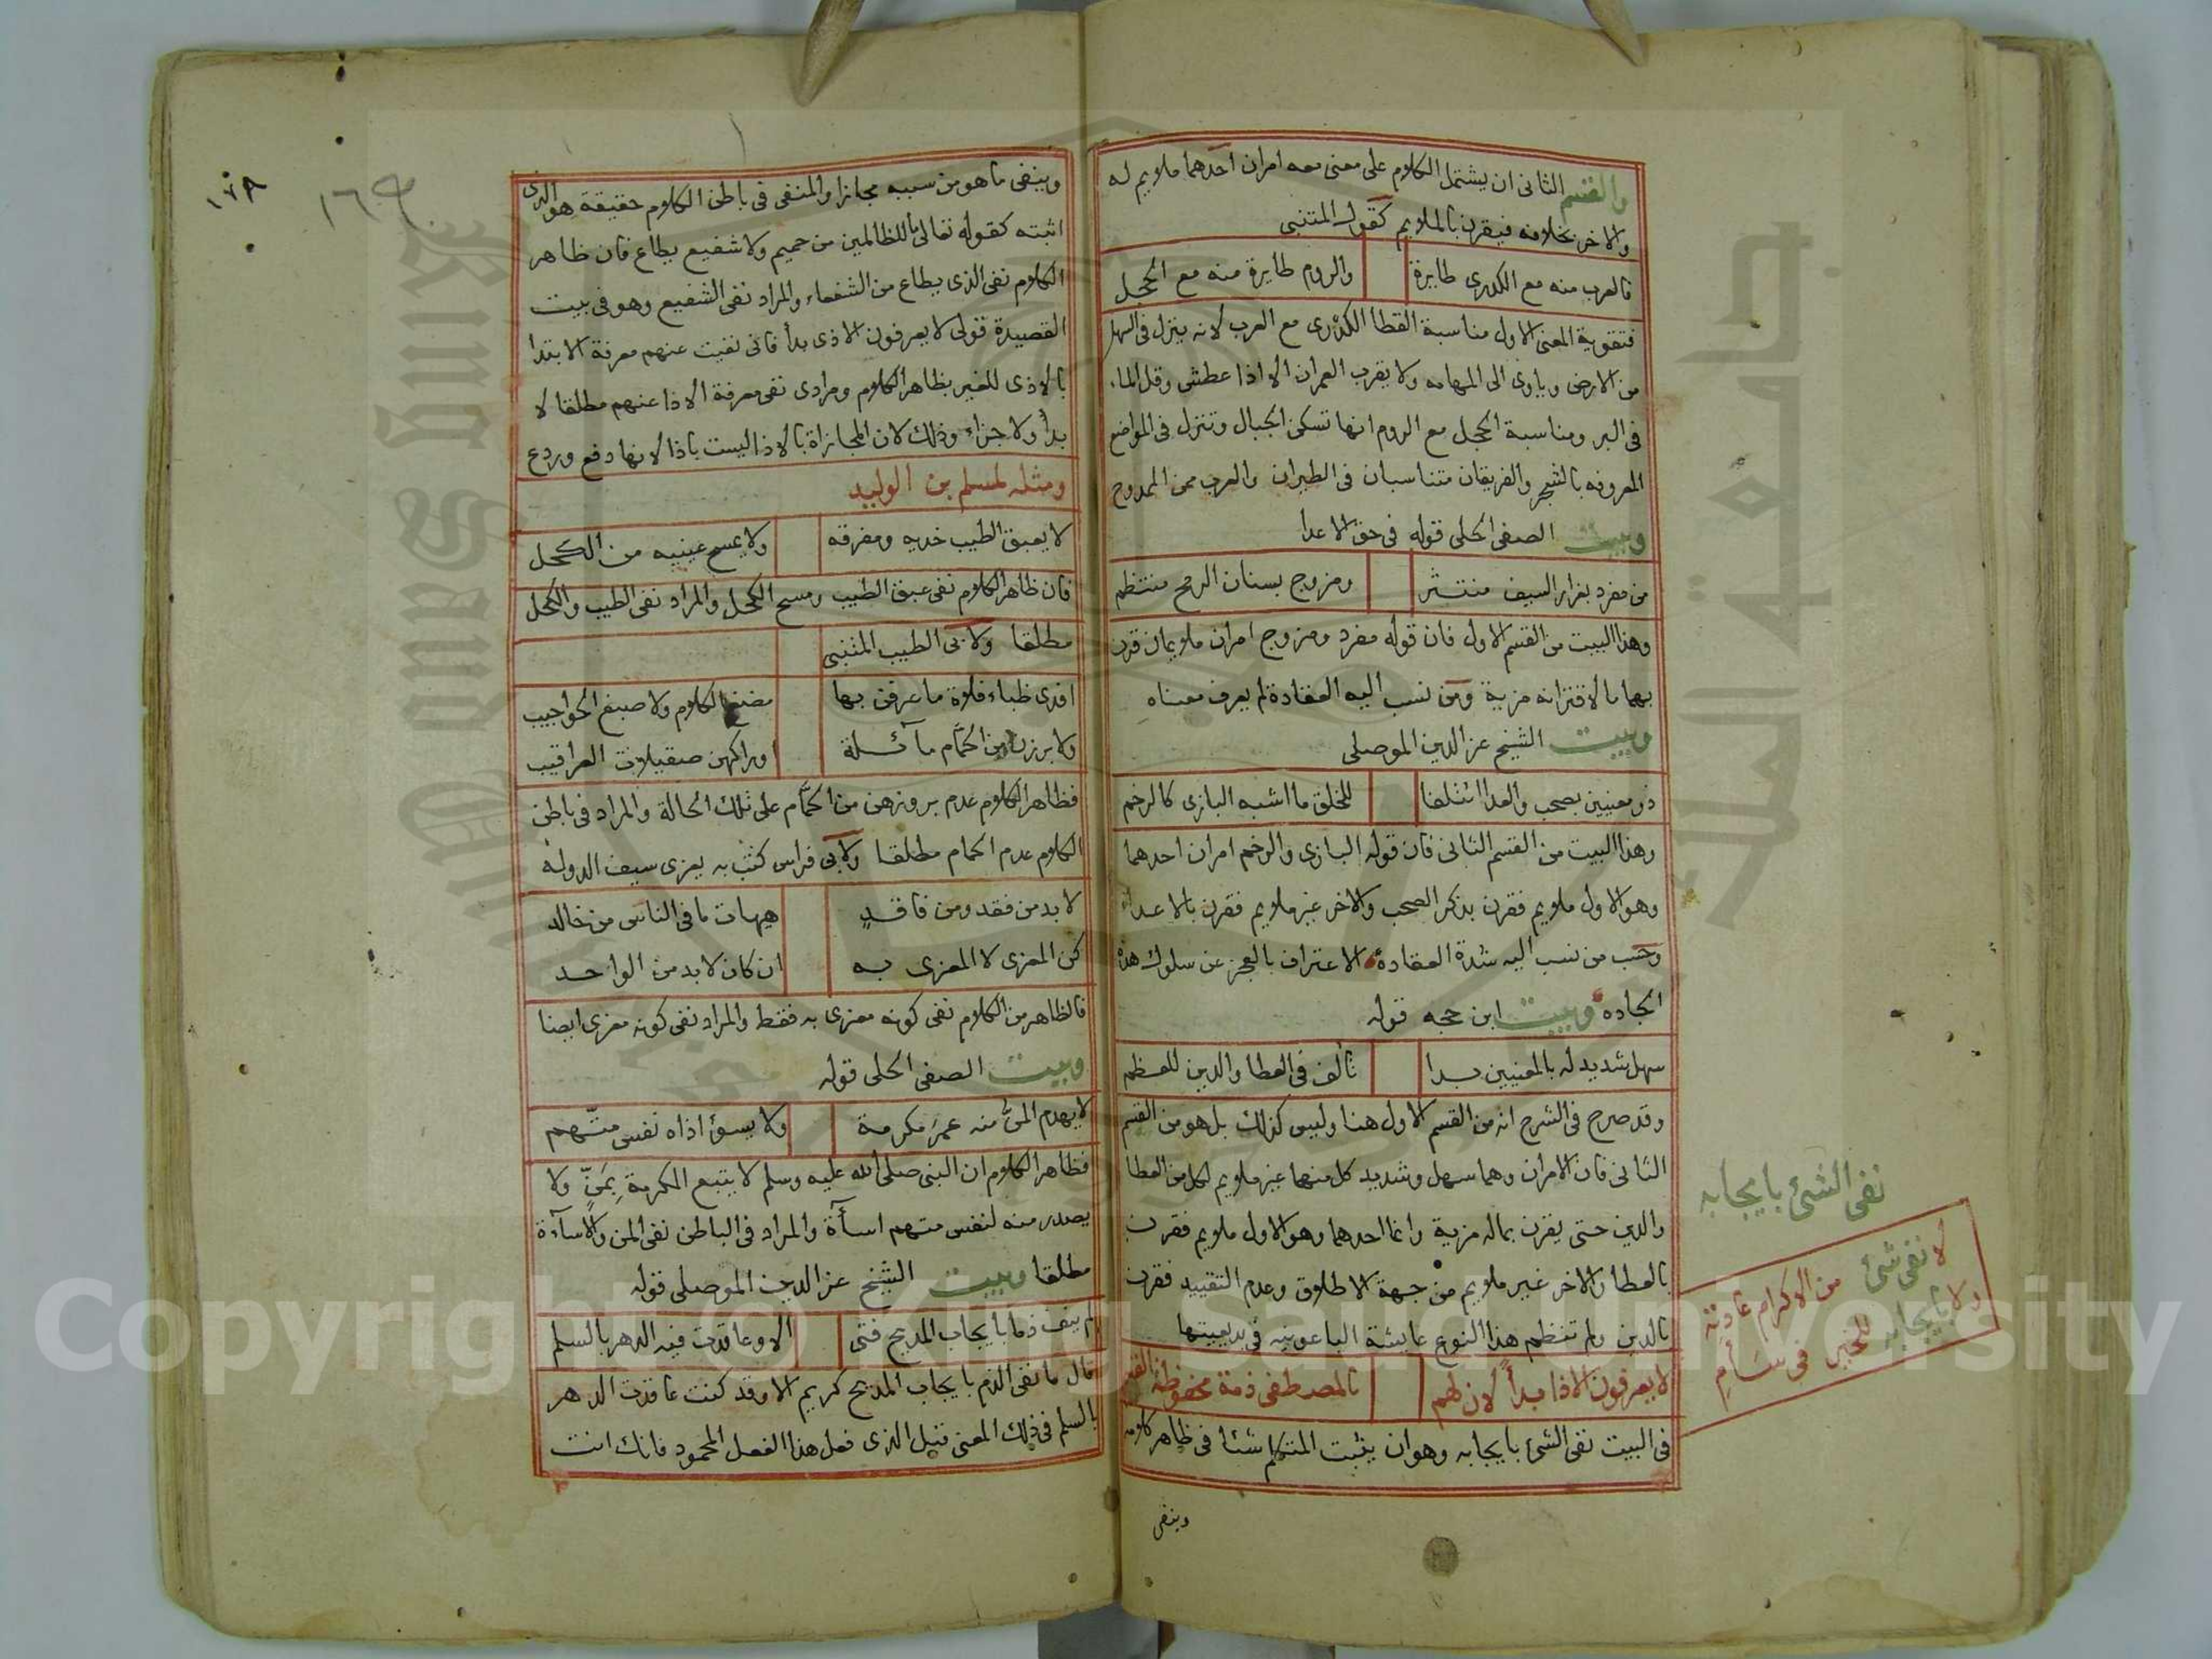 والقسم الثانى ان يشتمل الكلام على معنى معه امران احدهما ملايم له
والاخر بخلافه فيقرن بالملايم كقول المتنبى
فالعرب منه مع الكدرى طايرة والروم طايرة منه مع الحجل
فتقوية المعنى الاول مناسبة القطا الكدرى مع العرب لانه ينزل فى السهل
من الارض وياوى الى المهامه ولا يقرب العمران الا اذا عطش وقل الماء
فى البر ومناسبة الحجل مع الروم انها تسكن الجبال وتنزل فى المواضع
المعروفه بالشجر والفريقان متناسبان فى الطيران والعرب من الممدوح
وبيت الصفى الحلى قوله فى حق الاعدا
من مفرد بغرار السيف منتثر ومزوج بسنان الرمح منتظم
وهذا البيت من القسم الاول فان قوله مفرد ومزوج امران ملايمان قرن
بهما مالاقترانه مزية ومن نسب اليه العقادة لم يعرف معناه
وبيت الشيخ عز الدين الموصلى
ذو معنيين بصحب والعدا ائتلفا للخلق ما اشبه البازى كالرخم
وهذا البيت من القسم الثانى فان قوله البازى والرخم امران احدهما
وهو الاول ملايم فقرن بذكر الصحب والاخر غير ملايم فقرن بالاعداء
وحسب من نسب اليه شدة العقادة الاعتراف بالعجز عن سلوك هذه
الجاده وبيت ابن حجه قوله
سهل شديد له بالمعنيين بدا تالف فى العطا والدين للعظم
وقد صرح فى الشرح انه من القسم الاول هنا وليس كذلك بل هو من القسم
الثانى فان الامران وهما سهل وشديد كل منهما غير ملايم لكل من العطا
والدين حتى يقرن بماله مزية وانما احدهما وهو الاول ملايم فقرن
بالعطا والاخر غير ملايم من جهة الاطلاق وعدم التقييد فقرن
بالدين ولم تنظم هذا النوع عايشة الباعونيه فى بديعيتها
لا يعرفون الاذا مبدأ لان لهم بالمصطفى ذمة محفوظة
فى البيت نفى الشئ بايجابه وهو ان يثبت المتكلم شئا فى ظاهر كلامه
وينفى
نفى الشئ بايجابه
لا نفى شئ من الاكرام عادته
ولا بايجابه للخير فى سأم
١٦٩
وينفى ما هو من سببه مجازا والمنفى فى باطن الكلام حقيقة هو الذى
اثبته كقوله تعالى ما للظالمين من حميم ولا شفيع يطاع فان ظاهر
الكلام نفى الذى يطاع من الشفعاء والمراد نفى الشفيع وهو فى بيت
القصيدة قولى لا يعرفون الاذى بدأ فانى نفيت عنهم معرفة الابتدا
بالاذى للغير بظاهر الكلام ومرادى نفى معرفة الاذا عنهم مطلقا لا
بدأ ولا جزاء وذلك لان المجازاة بالاذا ليست باذا لانها دفع وردع
ومثله لمسلم بن الوليد
لا يعبق الطيب خديه ومفرقه ولا يمسح عينيه من الكحل
فان ظاهر الكلام نفى عبق الطيب ومسح الكحل والمراد نفى الطيب والكحل
مطلقا ولابى الطيب المتنبى
افدى ظباء فلاة ما عرفن بها مضغ الكلام ولا صبغ الحواجيب
ولا برزن من الحمّام مآئلة اوراكهن صقيلات العراقيب
فظاهر الكلام عدم بروزهن من الحمّام على تلك الحالة والمراد فى باطن
الكلام عدم الحمام مطلقا ولابى فراس كتب به يعزى سيف الدوله
لا بد من فقد ومن فاقدٍ هيهات ما فى الناس من خالد
كن المعزى لا المعزى به ان كان لا بد من الواحد
فالظاهر من الكلام نفى كونه معزى به فقط والمراد نفى كونه معزى ايضا
وبيت الصفى الحلى قوله
لا يهدم المنّ منه عمر مكرمة ولا يسوء اذاه نفس متّهم
فظاهر الكلام ان النبى صلى الله عليه وسلم لا يتبع المكرمة بمَنٍّ ولا
يصدر منه لنفس متهم اسأة والمراد فى الباطن نفى المن والاسآءة
مطلقا وبيت الشيخ عز الدين الموصلى قوله
لم ينف ذما بايجاب المديح فتى الا وعاقدت فيه الدهر بالسلم
قال ما نفى الذم بايجاب المديح كريم الا وقد كنت عاقدت الدهر
بالسلم فى ذلك المعنى قبل الذى فعل هذا الفعل المحمود فانك انت
Copyright © King Saud University
جامعة الملك سعود
King Saud University